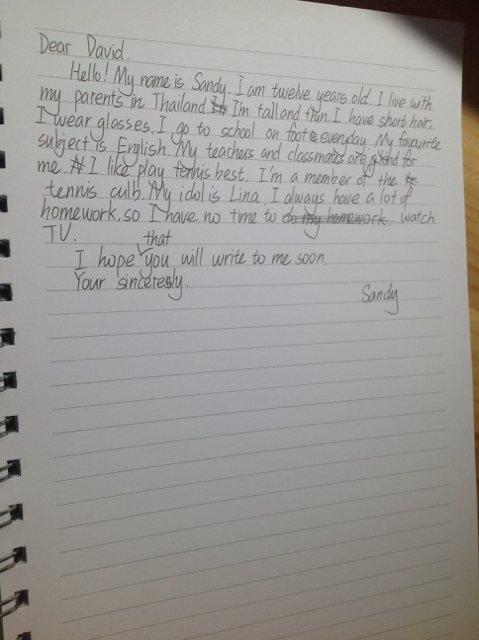 Dear David.
Hello! My name is Sandy. I am twelve years old. I live with
my parents in Thailand. I'm tall and thin. I have short hair.
I wear glasses. I go to school on foot everyday. My favourite
subject is English. My teachers and classmates are kind for
me. I like play tennis best. I'm a member of the
tennis culb. My idol is Lina. I always have a lot of
homework, so I have no time to do my homework. watch
TV.
I hope that you will write to me soon.
Your sincerely.
Sandy